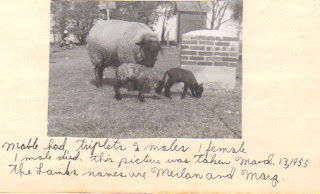 Mable had triplets 2 males 1 female
1 male died. this picture was taken March 17, 1955
The Lambs names are Merlan and Marg.